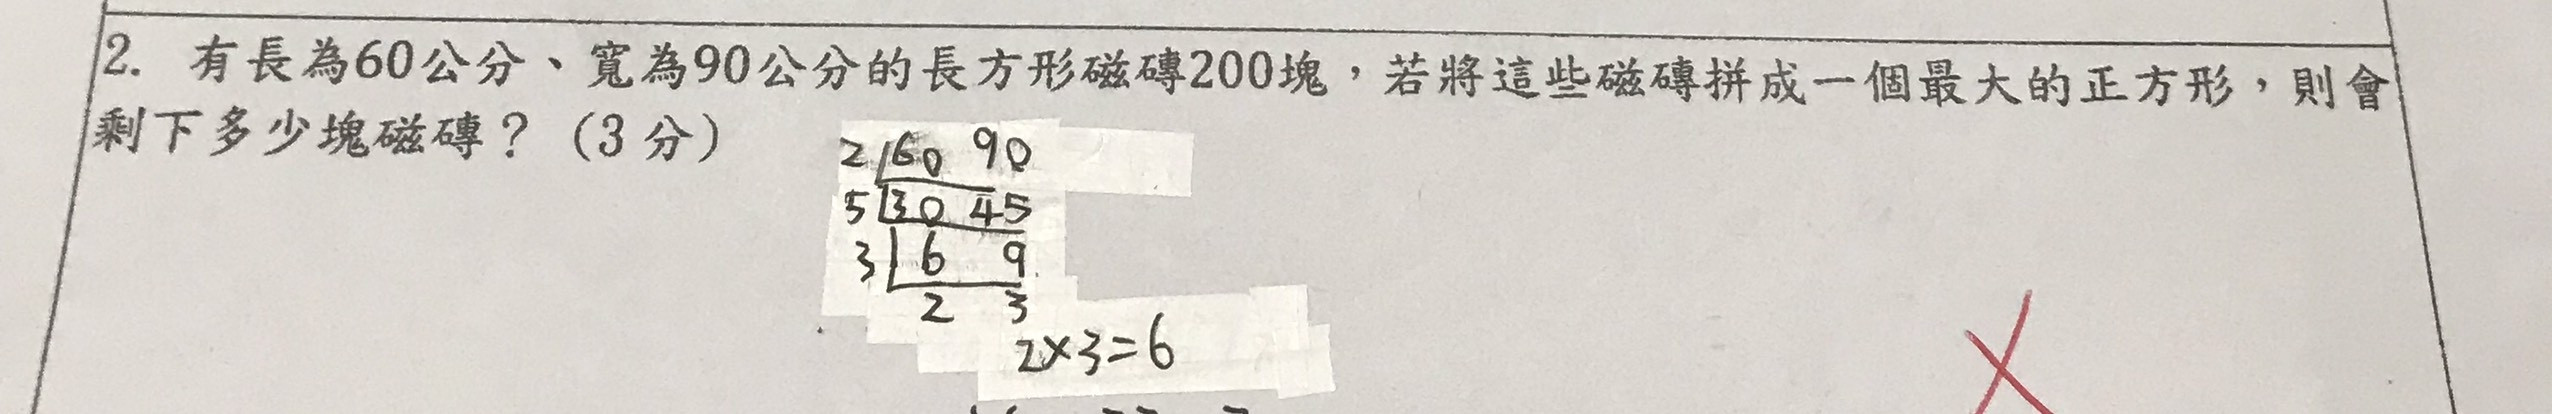 2. 有長為60公分、寬為90公分的長方形磁磚200塊，若將這些磁磚拼成一個最大的正方形，則會
剩下多少塊磁磚？（3分）
2 60 90
5 30 45
3 6 9
2 3
2×3=6